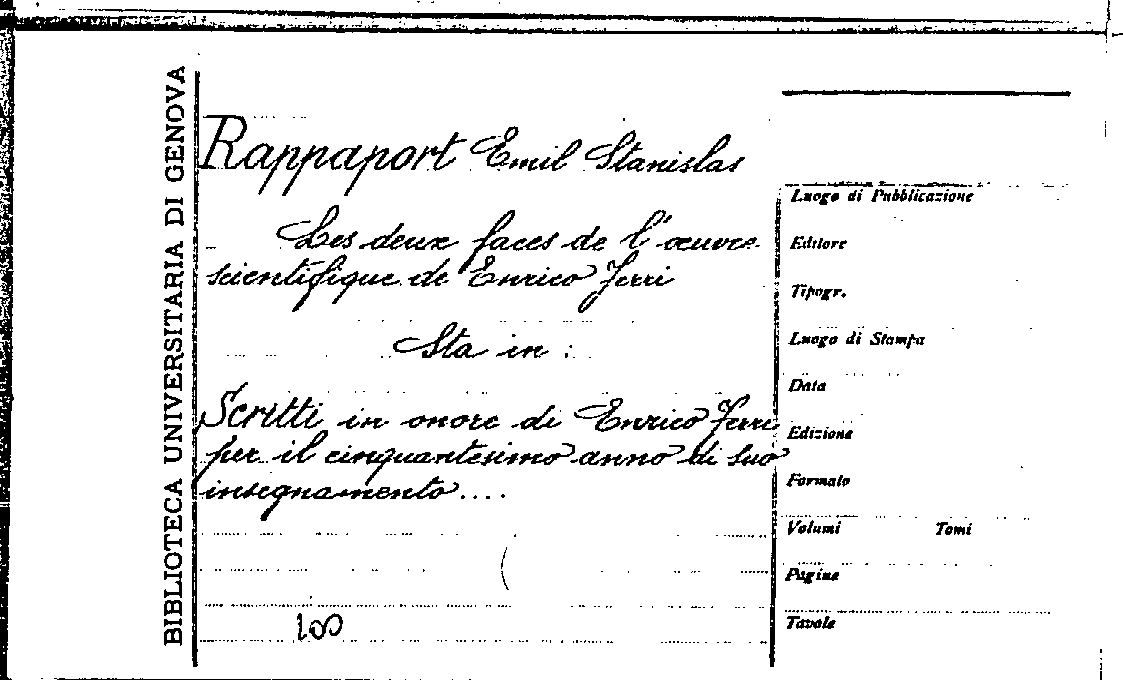 BIBLIOTECA UNIVERSITARIA DI GENOVA
Rappaport Emil Stanislas
Les deux faces de l'œuvre
scientifique de Enrico Ferri
Sta in :
Scritti in onore di Enrico Ferri
per il cinquantesimo anno di suo
insegnamento....
100
Luogo di Pubblicazione
Editore
Tipogr.
Luogo di Stampa
Data
Edizione
Formato
Volumi Tomi
Pagine
Tavole